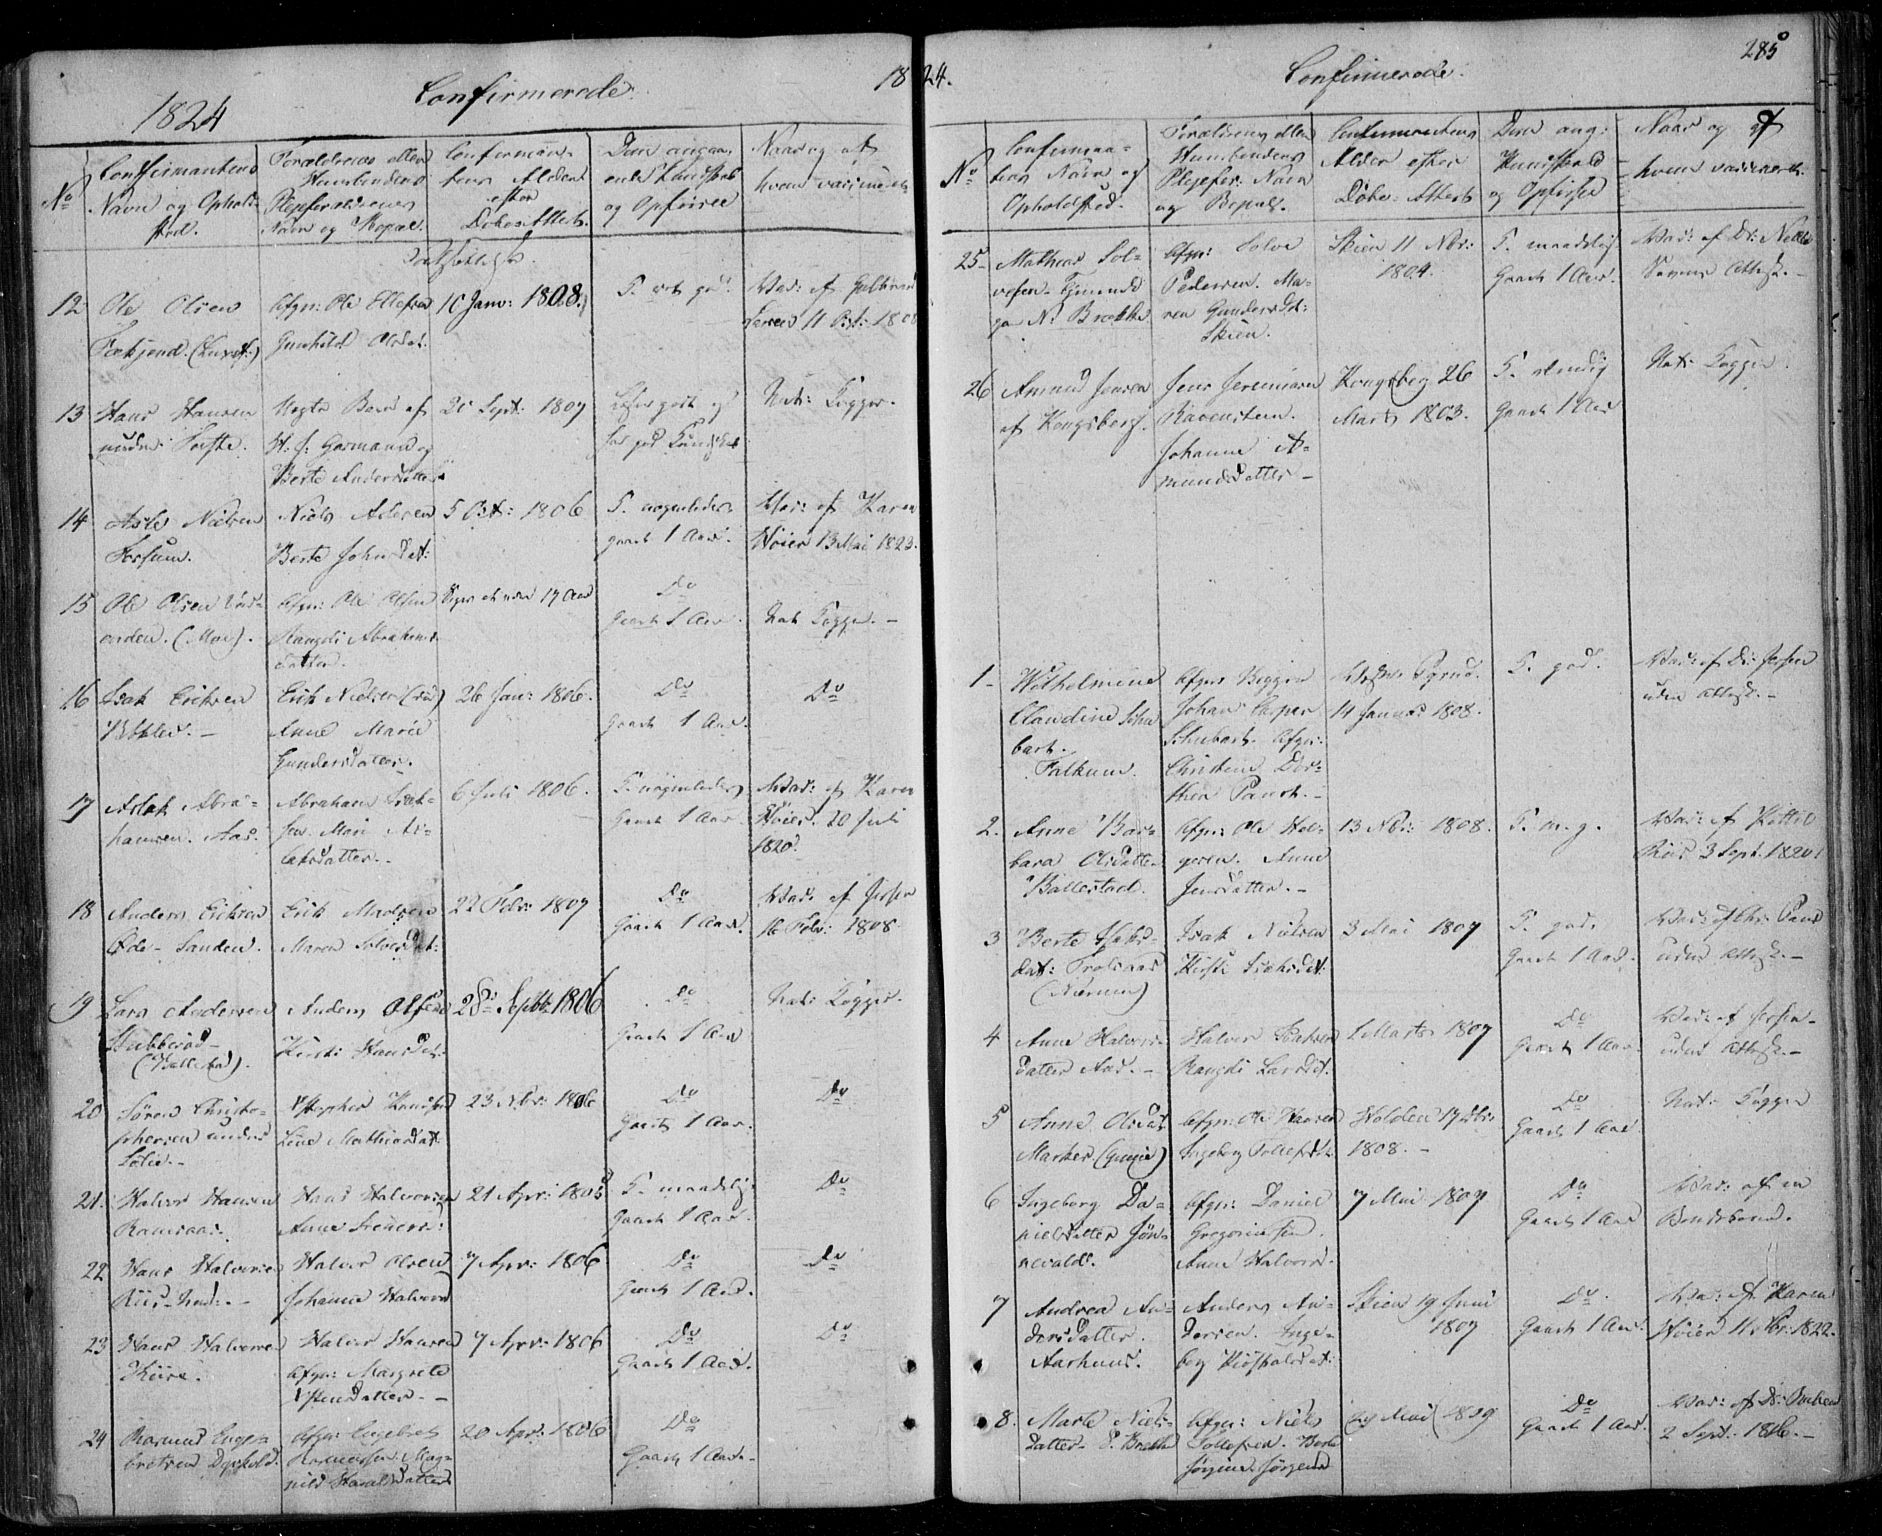 1824
Confirmerede.
1824.
Confirmerede.
285
No
Confirmantens
Navn og Opholds-
sted.
Forældrenes eller
Huusbondens
Plejeforældrenes
Navn og Bopæl.
Confirman-
tens Alder
efter
Døbe-Attest.
Dom angaa-
ende Kundskab
og Opførsel
Naar og af
hvem vaccineret
12
Ole Olsen
Afgn: Ole Ellefsen
Gunhild Olsdat.
10 Janr: 1808.
Vac: af
11 Oct: 1808
13
Hans Hansen
Uegte Barn af
H. J. Garmann og
Berte Andersdatter
Sept: 1807
god Kundskab
Nat: Kopper.
14
Asle Nielsen
Fossum.
Niels Aslesen
Berte Johnsdat:
5 Oct: 1806
K. nogenledes
gaaet 1 Aar.
Vac: af Karen
Høier 13 Mai 1823.
15
Ole Olsen
(Moe).
Afgn: Ole Olsen
Raugdi Abrahams-
datter.
17 Aar
Do
Gaaet 1 Aar.
Nat: Kopper. -
16
Isak Eriksen
Erik Nielsen
Anne Marie
Gundersdatter.
26 Jan: 1806.
Do
Gaaet 1 Aar.
Do
17
Aslak Abra-
hamsen. Aas.
Abraham Isak-
sen. Mari As-
laksdatter.
6 Juli 1806.
K. nogenledes
Gaaet 1 Aar
Vac: af Karen
Høier. 20 Juli
1820.
18
Anders Eriksen
Øde-Sanden.
Erik Madsen
Maren Solvesdat:
22 Febr: 1807
Do
Gaaet 1 Aar.
Vac: af Jessen
16 Febr: 1808.
19
Lars Andersen
Stubberød-
(Ballestad).
Anders Olsen
Kirsti Hansdat.
28de Septbr 1806
Do
Gaaet 1 Aar
Nat: Kopper.
20
Søren Christo-
phersen under
Christopher Knudsen
Line Mathiasdat.
23 Nbr: 1806
Do
Gaaet 1 Aar.
Do
21.
Halvor Hansen
Ramsaas.
Hans Halvorsen
Anne
21 Apr: 1805
K. maadelig
Gaaet 1 Aar.
Do
22
Hans Halvorsen
Riis-
Halvor Olsen
Johanne Halvorsd
7 Apr: 1806
Do
Gaaet 1 Aar.
Do
23
Hans Halvorsen
Halvor Hansen
Afgn: Margrete
7 Apr: 1806
Do
Gaaet 1 Aar.
Do
24
Rasmus Enge-
bretsen
Afgn: Engebret
Rasmussen. Mag-
nild Haraldsdatter
20 Apr: 1806
Do
Gaaet 1 Aar.
No
Confirman-
tens Navn og
Opholdsted.
Forældrenes eller
Huusbondens
Plejefor: Navn
og Bopæl.
Confirmantens
Alder efter
Døbe-Attest
Dom ang:
Kundskab
og Opførsel
Naar og af
hvem vaccineret.
25
Mathias Sol-
vesen
N: Brekke
Afgn: Solve
Pedersen. Ma-
ren Gundersdt:
Skien.
Skien 11 Nbr:
1804.
K. maadelig
Gaaet 1 Aar.
Vac: af Dr:
Attest. -
26
Amund Jensen
af Kongsberg.
Jens Jeremiasen
Ravenstein.
Johanne A-
mundsdatter -
Kongsberg 26
Marts 1803.
K.
Gaaet 1 Aar
Nat: Kopper.
1
Wilhelmine
Claudine Schu-
bart.
Falkum.
Afgn:
Johan Casper
Schubart. Afgn:
Christine Dor-
thea Paust.
14 Januar 1808.
K. god.
Vac: af Dr: Jessen
uden Attest. -
2.
Anne Bar-
bara Olsdatter
Ballestad.
Afgn: Ole Hol-
gersen. Anne
Jensdatter. -
13 Nbr: 1808.
K. m. g.
Vac: af Kittil
Riis 3 Sept. 1820.
3
Berte Isaks-
dat:
(Nærum)
Isak Nielsen
Kirsti Isaksdat:
3 Mai 1807
K. god.
Gaaet 1 Aar.
Vac: af Chr: Paus
uden Attest. -
4
Anne Halvors-
datter Aas. -
Halvor Isaksen
Raugdi Larsdt:
1 Marts 1807
Do
Gaaet 1 Aar.
Vac: af Jessen
uden Attest. -
5
Anne Olsdat
Afgn: Ole Hansen
Ingeborg Tollefsdt.
Holden 17
1808. -
Do
Gaaet 1 Aar
Nat: Kopper
6
Ingeborg Da-
nielsdatter Jøn-
nevald.
Afgn: Daniel
Gregoriusen.
Anne Halvorsd.
7 Mai 1807
Do
Gaaet 1 Aar
Vac: af en
Bondekone.
7
Andrea An-
dersdatter.
Aarhuus.
Anders An-
dersen. Inge-
borg
Skien 19 Juni
1807
Do
Gaaet 1 Aar.
Vac: af Karen
Høier 11 1822.
8.
Marte Niels-
datter
Afgn: Niels
Tollefsen. Berte
Jørgine Jørgensd
Mai 1809
Do
Gaaet 1 Aar.
Vac: af Dr:
2 Sept: 1816. -